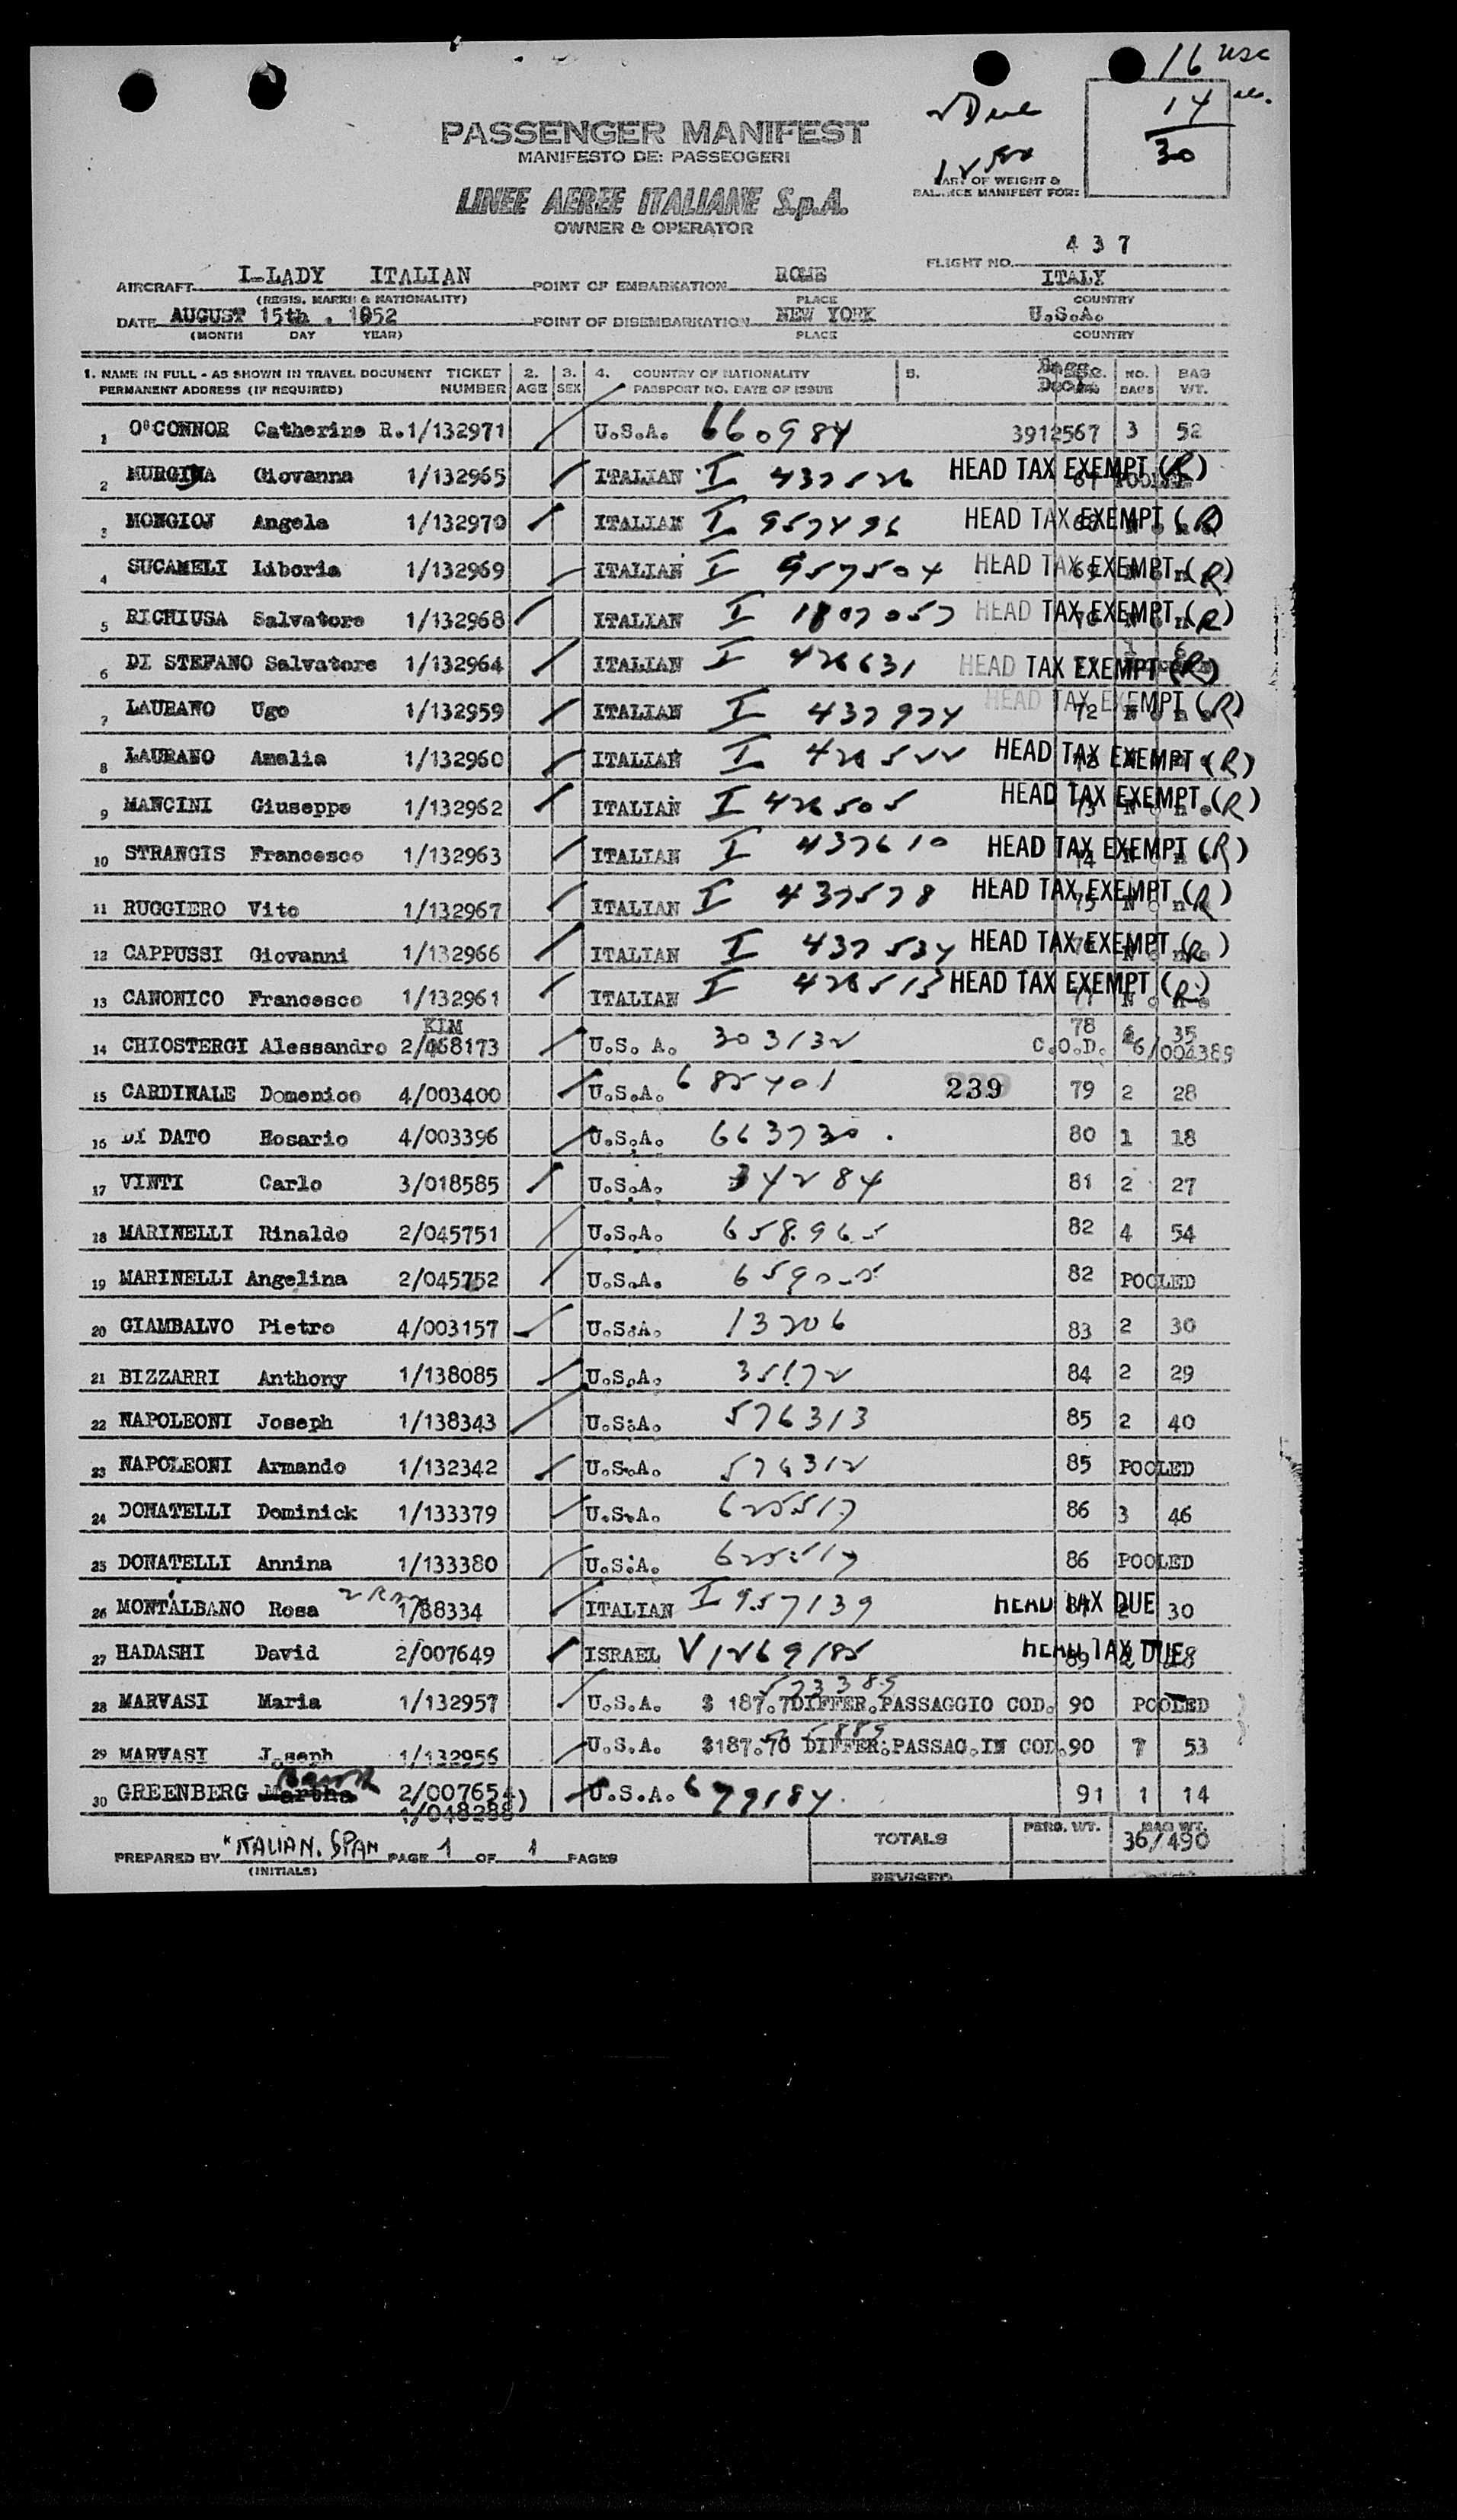 16 usc
14
30
Due
PASSENGER MANIFEST
MANIFESTO DE: PASSEOGERI
PART OF WEIGHT &
BALANCE MANIFEST FOR:
LINEE AEREE ITALIANE S.p.A.
OWNER & OPERATOR
FLIGHT NO. 437
AIRCRAFT I-LADY ITALIAN POINT OF EMBARKATION ROME ITALY
(REGIS. MARKS & NATIONALITY) PLACE COUNTRY
DATE AUGUST 15th. 1952 POINT OF DISEMBARKATION NEW YORK U.S.A.
(MONTH DAY YEAR) PLACE COUNTRY
1. NAME IN FULL - AS SHOWN IN TRAVEL DOCUMENT TICKET 2. 3. 4. COUNTRY OF NATIONALITY 5. NO. BAG
PERMANENT ADDRESS (IF REQUIRED) NUMBER AGE SEX PASSPORT NO. DATE OF ISSUE BAGS WT.
1 O'CONNOR Catherine R. 1/132971 U.S.A. 660984 3912567 3 52
2 Giovanna 1/132965 ITALIAN I 437526 HEAD TAX EXEMPT (R)
3 MONGIOJ Angela 1/132970 ITALIAN I 957496 HEAD TAX EXEMPT (R)
4 SUCAMELI Liboria 1/132969 ITALIAN I 957504 HEAD TAX EXEMPT (R)
5 RICHIUSA Salvatore 1/132968 ITALIAN I 1807057 HEAD TAX EXEMPT (R)
6 DI STEFANO Salvatore 1/132964 ITALIAN I 426631 HEAD TAX EXEMPT (R)
7 LAURANO Ugo 1/132959 ITALIAN I 437974 HEAD TAX EXEMPT (R) 72
8 LAURANO Amalia 1/132960 ITALIAN I HEAD TAX EXEMPT (R)
9 MANCINI Giuseppe 1/132962 ITALIAN I 426505 HEAD TAX EXEMPT (R) 73
10 STRANGIS Francesco 1/132963 ITALIAN I 437610 HEAD TAX EXEMPT (R) 74
11 RUGGIERO Vito 1/132967 ITALIAN I 437578 HEAD TAX EXEMPT (R) 75
12 CAPPUSSI Giovanni 1/132966 ITALIAN I 437534 HEAD TAX EXEMPT (R)
13 CANONICO Francesco 1/132961 ITALIAN I HEAD TAX EXEMPT (R) 77
KLM 78 35
14 CHIOSTERGI Alessandro 2/068173 U.S. A. 303132 C.O.D. 6/004389
15 CARDINALE Domenico 4/003400 U.S.A. 685401 239 79 2 28
16 DI DATO Rosario 4/003396 U.S.A. 663730 80 1 18
17 VINTI Carlo 3/018585 U.S.A. 34284 81 2 27
18 MARINELLI Rinaldo 2/045751 U.S.A. 658965 82 4 54
19 MARINELLI Angelina 2/045752 U.S.A. 82 POOLED
20 GIAMBALVO Pietro 4/003157 U.S.A. 13206 83 2 30
21 BIZZARRI Anthony 1/138085 U.S.A. 35172 84 2 29
22 NAPOLEONI Joseph 1/138343 U.S.A. 576313 85 2 40
23 NAPOLEONI Armando 1/132342 U.S.A. 576312 85 POOLED
24 DONATELLI Dominick 1/133379 U.S.A. 625517 86 3 46
25 DONATELLI Annina 1/133380 U.S.A. 86 POOLED
26 MONTALBANO Rosa 1/88334 ITALIAN I 957139 HEAD TAX DUE 30
27 HADASHI David 2/007649 ISRAEL HEAD TAX DUE 89
28 MARVASI Maria 1/132957 U.S.A. 523385 $ 187.7 DIFFER.PASSAGGIO COD. 90 POOLED
29 MARVASI Joseph 1/132956 U.S.A. $187.70 DIFFER.PASSAG.IN COD. 90 7 53
30 GREENBERG Martha 2/007654 U.S.A. 679184 91 1 14
1/048288)
PREPARED BY "ITALIAN. SPAN PAGE 1 OF 1 PAGES TOTALS PERS. WT. BAG WT.
(INITIALS) 36/490
REVISED